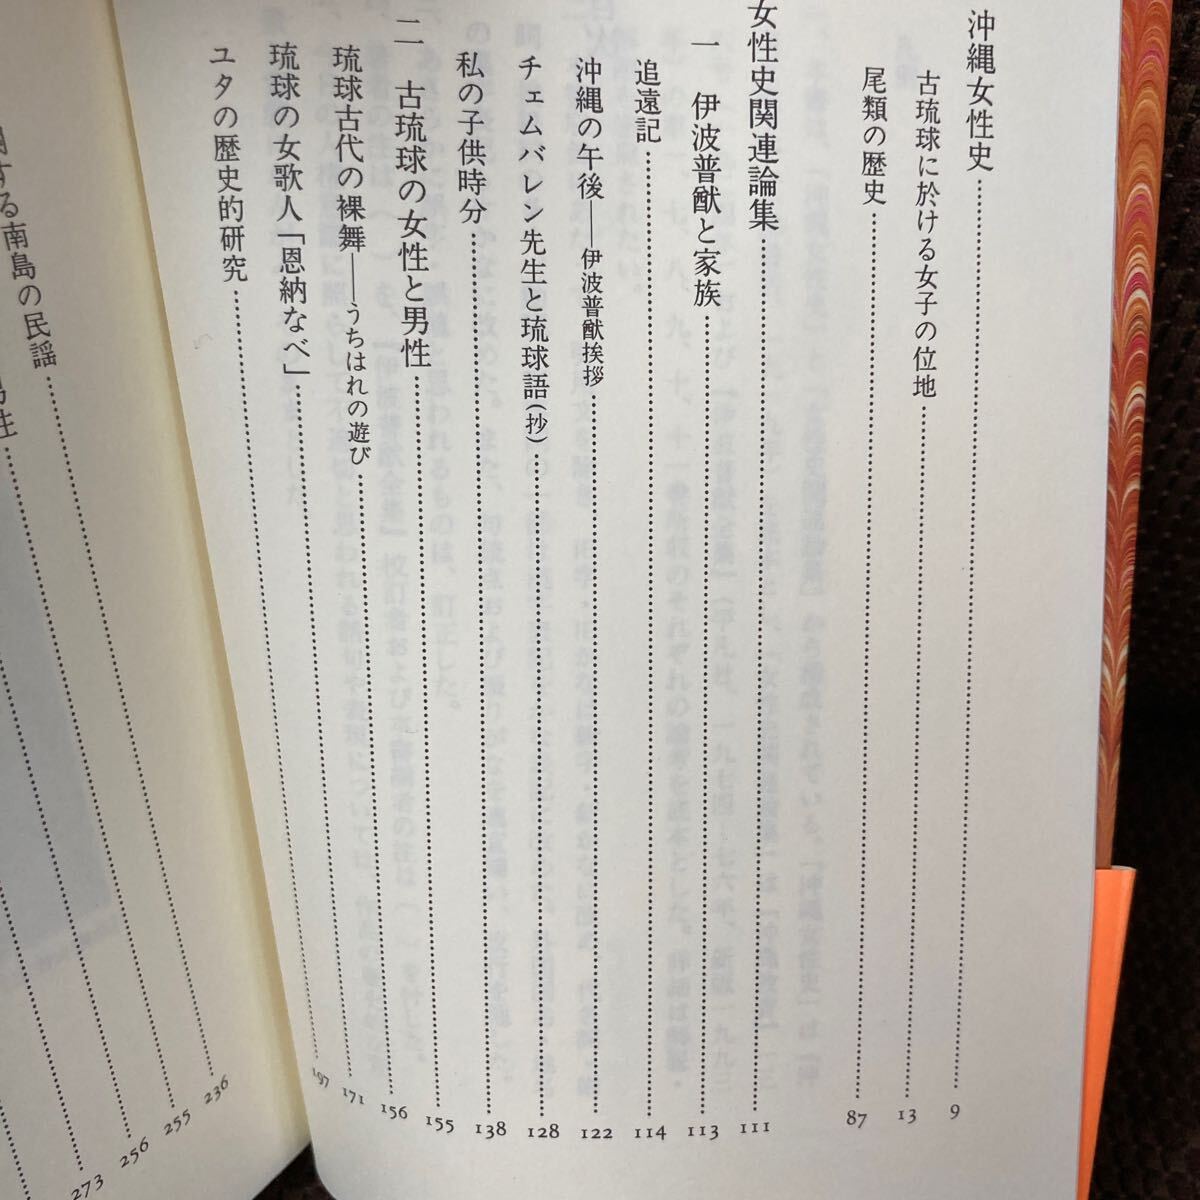 沖縄女性史 9
古琉球に於ける女子の位地 13
尾類の歴史 87
女性史関連論集 111
一 伊波普猷と家族 113
追遠記 114
沖縄の午後――伊波普猷挨拶 122
チェムバレン先生と琉球語(抄) 128
私の子供時分 138
二 古琉球の女性と男性 155
琉球古代の裸舞――うちはれの遊び 156
琉球の女歌人「恩納なべ」 171
ユタの歴史的研究 197
する南島の民謡 236
性 255
256
273